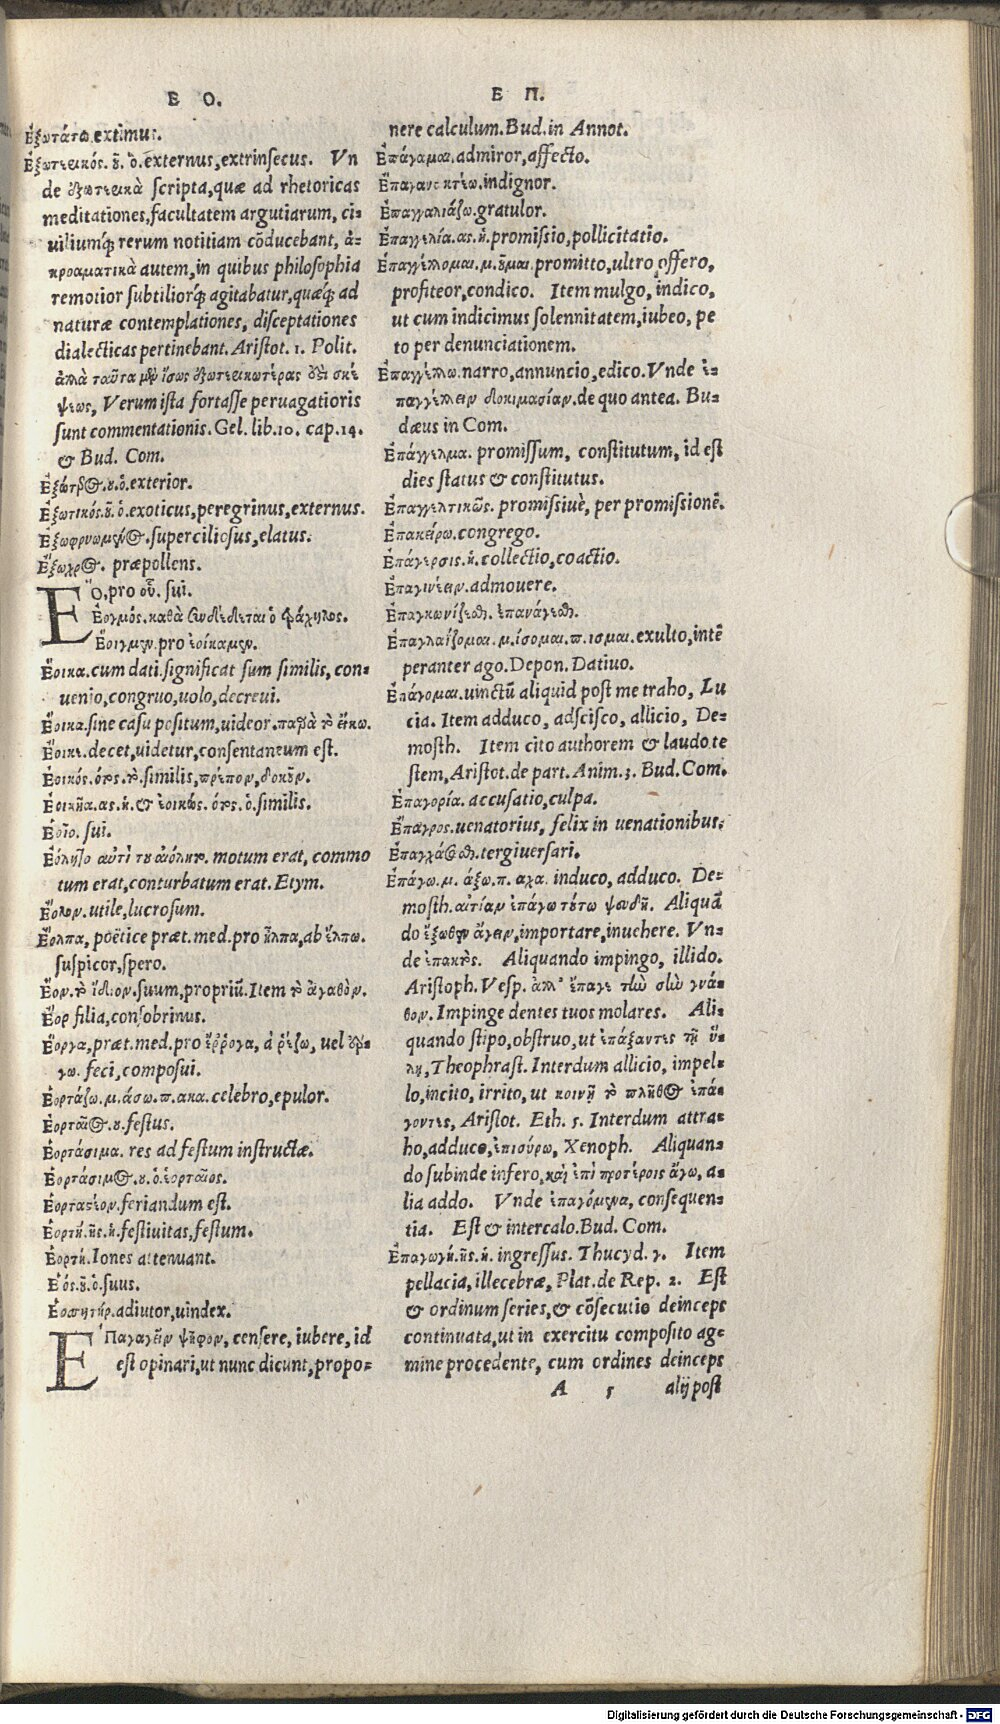 Ε Ο.
Ἐξωτάτω extimus.
Ἐξωτερικός. ȣ͂. ὁ. externus, extrinsecus. Vn
de ἐξωτερικὰ scripta, quæ ad rhetoricas
meditationes, facultatem argutiarum, ci-
uiliumq́; rerum notitiam cōducebant, ἀ-
κροαματικὰ autem, in quibus philosophia
remotior subtiliorq́; agitabatur, quæq́; ad
naturæ contemplationes, disceptationes
dialecticas pertinebant. Aristot. 1. Polit.
ἀλλὰ ταῦτα μὲν ἴσως ἐξωτερικωτέρας ὅτι σκέ
ψεως, Verum ista fortasse peruagatioris
sunt commentationis. Gel. lib. 10. cap. 14.
& Bud. Com.
Ἐξώτερος. ȣ. ὁ. exterior.
Ἐξωτικός. ȣ͂. ὁ. exoticus, peregrinus, externus.
Ἐξωφρυωμένος. superciliosus, elatus.
Ἔξωχρος. præpollens.
ἝΟ, pro οὗ. sui.
Ἑογμός. καθὰ ὁ φάχηλος.
Ἔοιγμεν. pro ἐοίκαμεν.
Ἔοικα. cum dati. significat sum similis, con-
uenio, congruo, uolo, decreui.
Ἔοικα. sine casu positum, uideor. παρὰ τὸ εἴκω.
Ἔοικε. decet, uidetur, consentaneum est.
Ἐοικός. ότος. τὸ. similis, πρέπον, δοκοῦν.
Ἐοικῆα. ας. ἡ. & ἐοικώς. ότος. ὁ. similis.
Ἑοῖο. sui.
Ἐόλητο ἀντὶ τοῦ αἰόλητο. motum erat, commo
tum erat, conturbatum erat. Etym.
Ἔολον. utile, lucrosum.
Ἔολπα, poëtice præt. med. pro ἦλπα, ab ἔλπω.
suspicor, spero.
Ἐον. τὸ ἴδιον. suum, propriū. Item τὸ ἀγαθόν.
Ἔορ filia, consobrinus.
Ἔοργα, præt. med. pro ἔῤῥογα, à ῥέζω, uel ἔρ-
γω. feci, composui.
Ἑορτάζω. μ. άσω. π. ακα. celebro, epulor.
Ἑορταῖος. ȣ. festus.
Ἑορτάσιμα. res ad festum instructæ.
Ἑορτάσιμος. ȣ. ὁ. ἑορταῖος.
Ἑορταστέον. feriandum est.
Ἑορτή. ῆς. ἡ. festiuitas, festum.
Ἑορτή. Iones attenuant.
Ἑός. ȣ͂. ὁ. suus.
Ἐοσσητήρ. adiutor, uindex.
ἘΠαγαγεῖν ψῆφον, censere, iubere, id
est opinari, ut nunc dicunt, propo-
Ε Π.
nere calculum. Bud. in Annot.
Ἐπάγαμαι. admiror, affecto.
Ἐπαγανακτέω. indignor.
Ἐπαγγαλιάζω. gratulor.
Ἐπαγγελία. ας. ἡ. promissio, pollicitatio.
Ἐπαγγέλλομαι. μ. οῦμαι. promitto, ultro offero,
profiteor, condico. Item mulgo, indico,
ut cum indicimus solennitatem, iubeo, pe
to per denunciationem.
Ἐπαγγέλλω. narro, annuncio, edico. Vnde ἐ-
παγγέλλειν δοκιμασίαν. de quo antea. Bu-
dæus in Com.
Ἐπάγγελμα. promissum, constitutum, id est
dies status & constitutus.
Ἐπαγγελτικῶς. promissiuè, per promissionē.
Ἐπαγείρω. congrego.
Ἐπάγερσις. ἡ. collectio, coactio.
Ἐπαγινέειν. admouere.
Ἐπαγκωνίζεσθαι. ἐπανάγεσθαι.
Ἐπαγλαΐζομαι. μ. ίσομαι. π. ισμαι. exulto, intē
peranter ago. Depon. Datiuo.
Ἐπάγομαι. uinctū aliquid post me traho, Lu
cia. Item adduco, adscisco, allicio, De-
mosth. Item cito authorem & laudo te
stem, Aristot. de part. Anim. 3. Bud. Com.
Ἐπαγορία. accusatio, culpa.
Ἔπαγρος. uenatorius, felix in uenationibus.
tergiuersari.
Ἐπάγω. μ. άξω. π. αχα. induco, adduco. De-
mosth. αἰτίαν ἐπάγω τούτῳ ψευδῆ. Aliquā
do ἔξωθεν ἄγειν, importare, inuehere. Vn-
de ἐπακτός. Aliquando impingo, illido.
Aristoph. Vesp. ἀλλ' ἔπαγε τὴν σὴν γνά-
θον. Impinge dentes tuos molares. Ali-
quando stipo, obstruo, ut ἐπάξαντες τῇ ὕ-
λῃ, Theophrast. Interdum allicio, impel-
lo, incito, irrito, ut κοινῇ τὸ πλῆθος ἐπά-
γοντες, Aristot. Eth. 5. Interdum attra-
ho, adduco, ἐπισύρω, Xenoph. Aliquan-
do subinde infero, καὶ ἐπὶ προτέροις ἄγω, a-
lia addo. Vnde ἐπαγόμενα, consequen-
tia. Est & intercalo. Bud. Com.
Ἐπαγωγή. ῆς. ἡ. ingressus. Thucyd. γ. Item
pellacia, illecebræ, Plat. de Rep. 2. Est
& ordinum series, & cōsecutio deinceps
continuata, ut in exercitu composito ag-
mine procedente, cum ordines deinceps
A 5 alij post
Digitalisierung gefördert durch die Deutsche Forschungsgemeinschaft - DFG